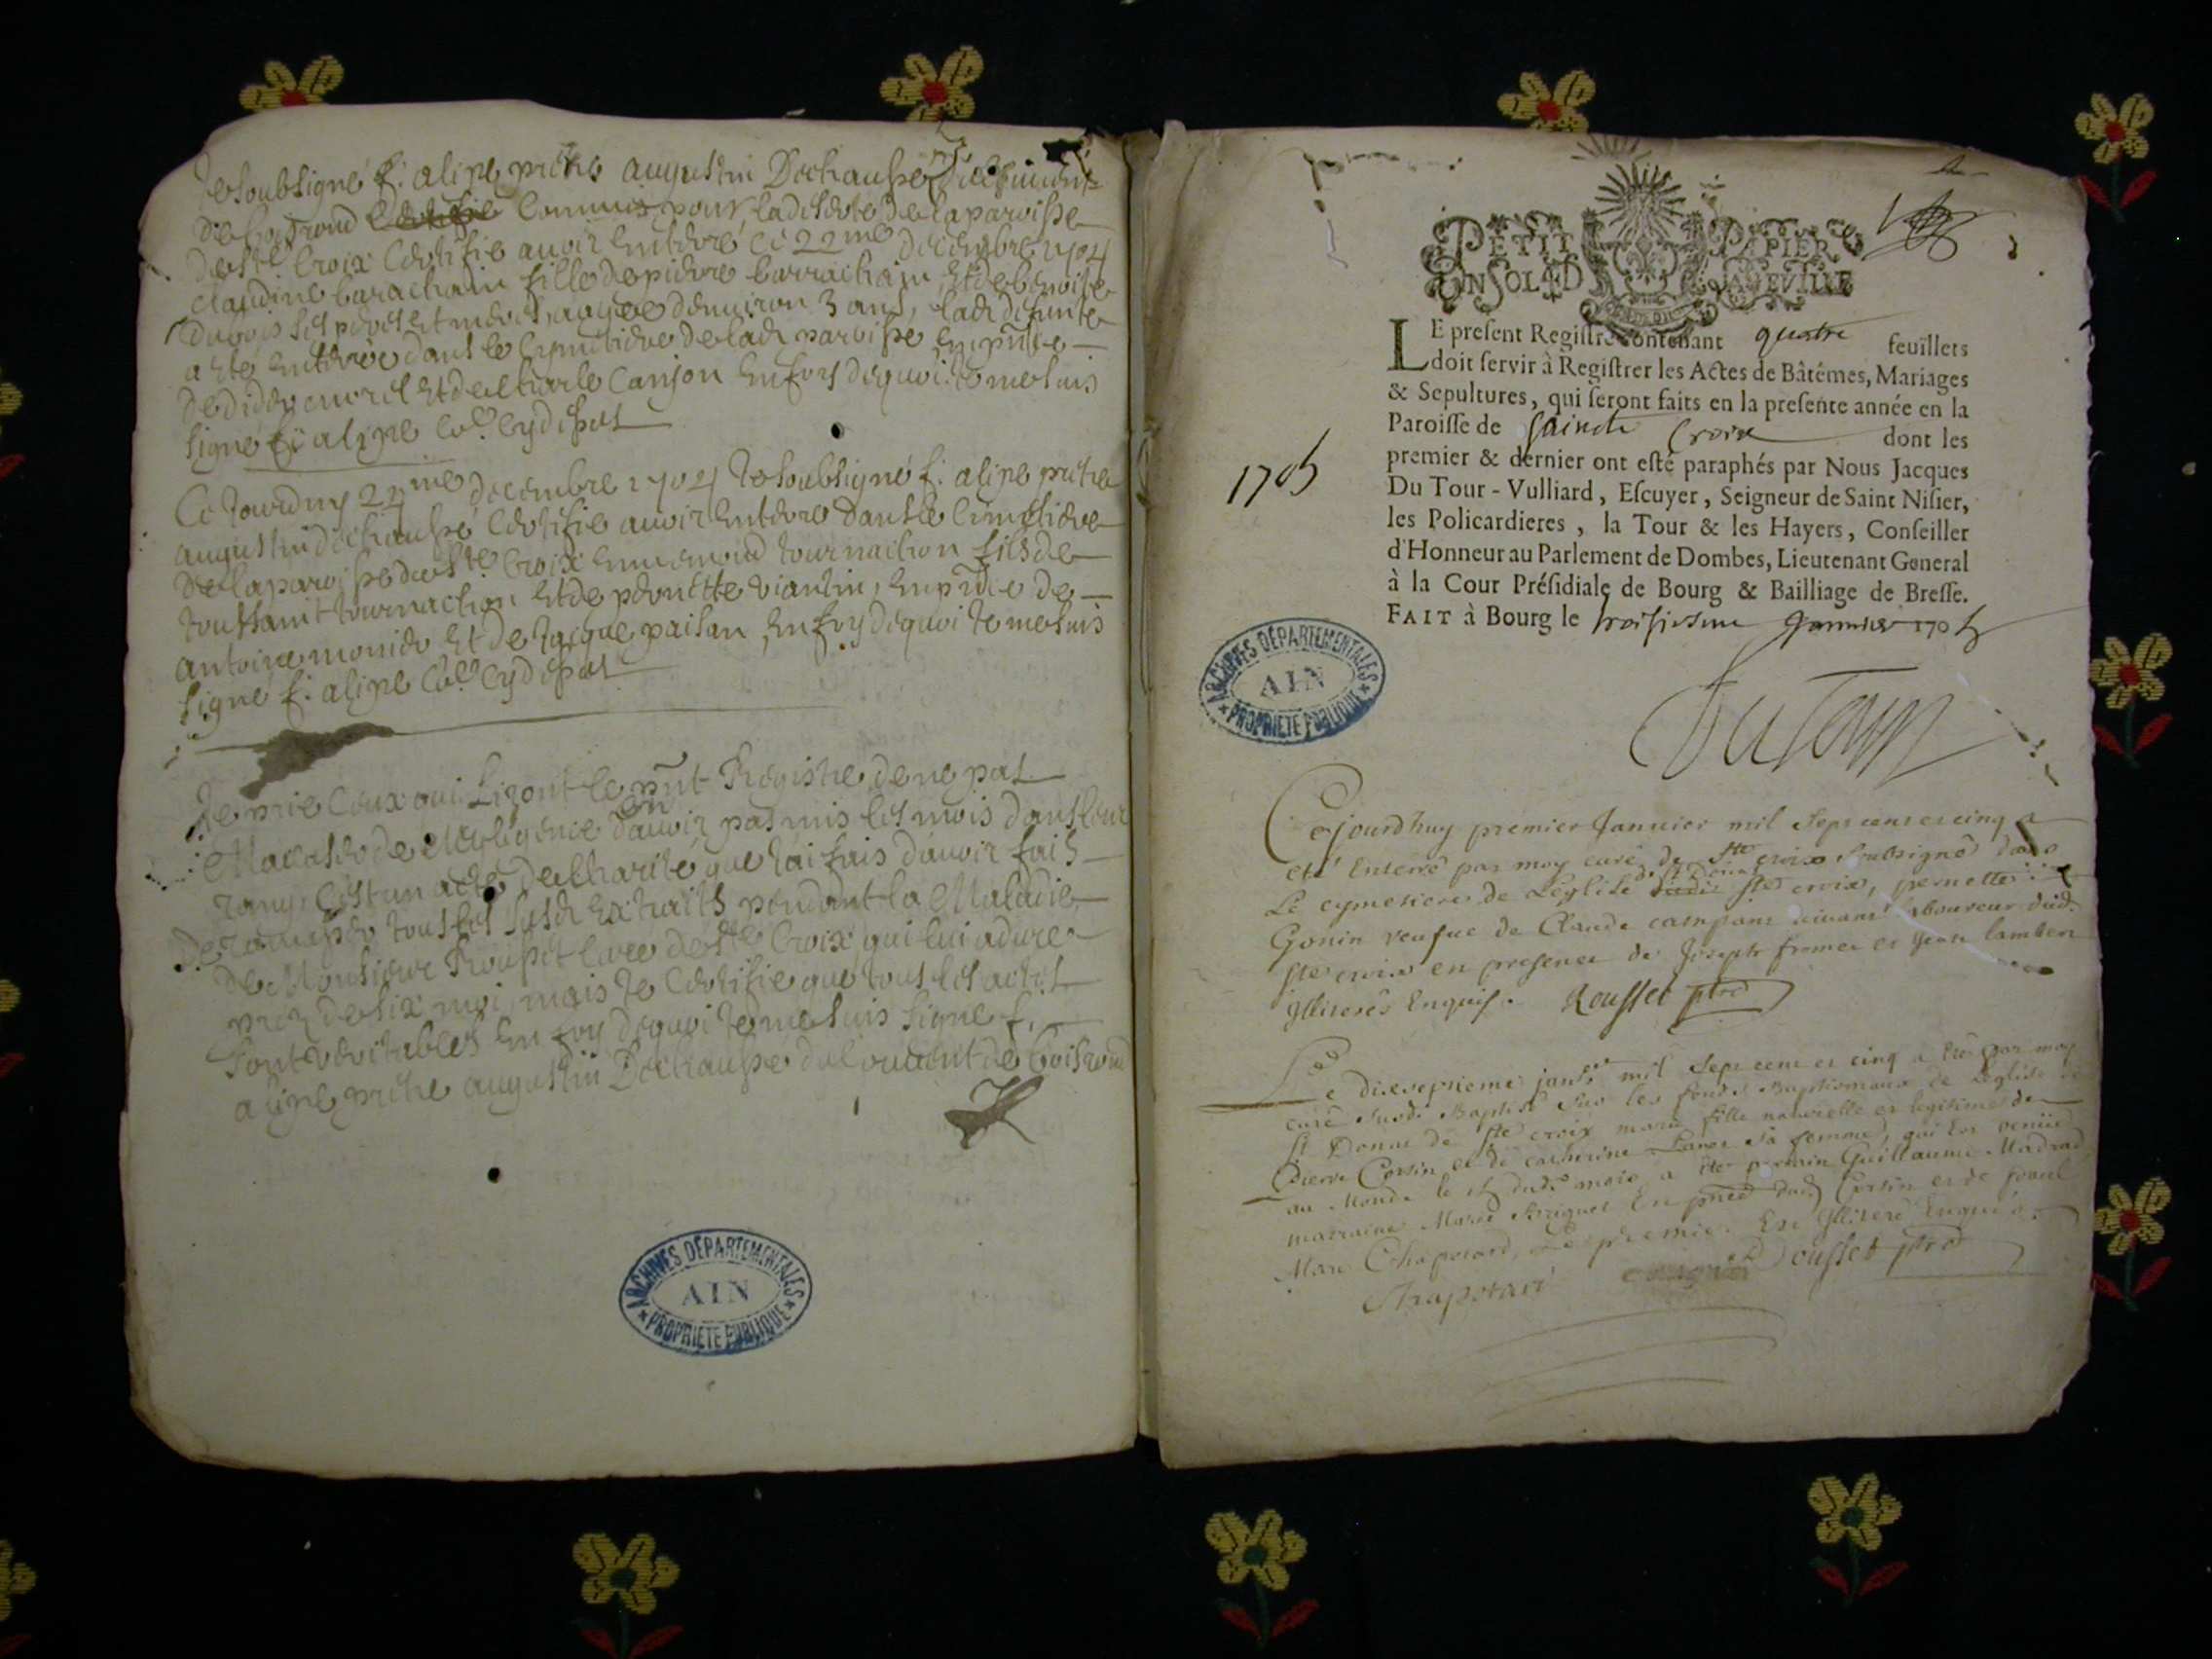 Je soubsigné f. alipe prêtre augustin Dechaussé du couvent
de boisrond commis pour la deserte de la paroisse
de ste Croix Certifie avoir enterré ce 22me decembre 1704
claudine barachain fille de pierre barrachain, Et de benoiste
dubois ses peres et meres, agee denviron 3 ans, ladt defunte
a ete enterrée dans le cymetiere de ladt paroisse en pñce
de didier morel Et de charle Canjon En foy dequoi Je me suis
signé f. alipe Co.e Cydessus
Ce Jourdhuy 22me decembre 1704 Je soubsigné f. alipe prêtre
augustin dechaussé Certifie avoir enterre dans le cimetiere
de la paroisse de ste Croix Ennemond tournachon fils de
toussaint tournachon Et de pernette viantin, En pñce de
antoine monier Et de Jacque paisan, En foy dequoi Je me suis
signé f. alipe Co.e Cydessus
Je prie Ceux qui Liront le pñt Registre de ne pas
Maccuser de Negligence en davoir pas mis les mois dans leur
rang, Cest un acte de charité que Jai fais davoir fait
de ramasser tous les susdt Extraits pendant la Maladie
de Monsieur Rousset Curé de ste Croix qui lui a duré
prez de six moi, mais Je Certifie que tous les actes
sont veritables En foy dequoi Je me suis signé f.
alipe prêtre augustin Dechaussé du Couvent de boisrond
ARCHIVES DÉPARTEMENTALES
AIN
PROPRIÉTÉ PUBLIQUE
PETIT PAPIER
UN SOL 4D LA FEVILLE
LE preſent Regiſtre contenant quatre feuillets
doit ſervir à Regiſtrer les Actes de Bâtêmes, Mariages
& Sepultures, qui ſeront faits en la preſente année en la
Paroiſſe de Saincte Croix dont les
premier & dernier ont eſté paraphés par Nous Jacques
1705
Du Tour-Vulliard, Eſcuyer, Seigneur de Saint Niſier,
les Policardieres, la Tour & les Hayers, Conſeiller
d'Honneur au Parlement de Dombes, Lieutenant General
à la Cour Préſidiale de Bourg & Bailliage de Breſſe.
FAIT à Bourg le troisiesme Januier 1705
ARCHIVES DÉPARTEMENTALES
AIN
PROPRIÉTÉ PUBLIQUE
DuTour
Cejourdhuy premier Januier mil sept cent et cinq a
eté Enterré par moy curé de Ste croix soubsigné dans
Le cymetiere de Léglise de St Donat Ste croix, pernette
Gonin veufue de Claude campane vivant laboureur dud.
Ste croix en presence de Joseph fromee et Jean lambert
Illiterés Enquis. Rousset ptre
Le dixseptieme janvr mil sept cent et cinq a eté par moy
curé susd. Baptisé sur les fonds Baptismaux de Léglise de
St Donat de Ste croix marie fille naturelle et legitime de
Pierre Corsin et de catherine sa femme, qui est venüe
au Monde le 15 dud. mois, a été parrain Guillaume
marraine Marie En pñce dud Corsin et de
Marc Chapotard, Le premier Est Illiteré Enquis.
Chapotard Rousset ptre